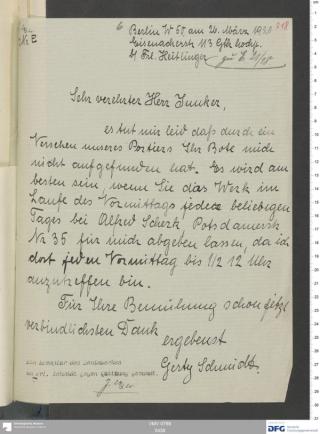 Berlin W 57, am 26. März 1930
Eisenacherstr. 113 Gth. hochp.
b/ Frl. Heitlinger
Sehr verehrter Herr Junker,
es tut mir leid daß durch ein
Versehen unseres Portiers Ihr Bote mich
nicht aufgefunden hat. Es wird am
besten sein, wenn Sie das Werk im
Laufe des Vormittags jedes beliebigen
Tages bei Alfred Scherk, Potsdamerstr.
Nr 35 für mich abgeben lassen, da ich
dort jeden Vormittag bis 1/2 12 Uhr
anzutreffen bin.
Für Ihre Bemühung schon jetzt
verbindlichsten Dank
ergebenst
Gerty Schmidt.
Ein Exemplar des Lautwerkes
gegen Quittung gesandt.
DFG